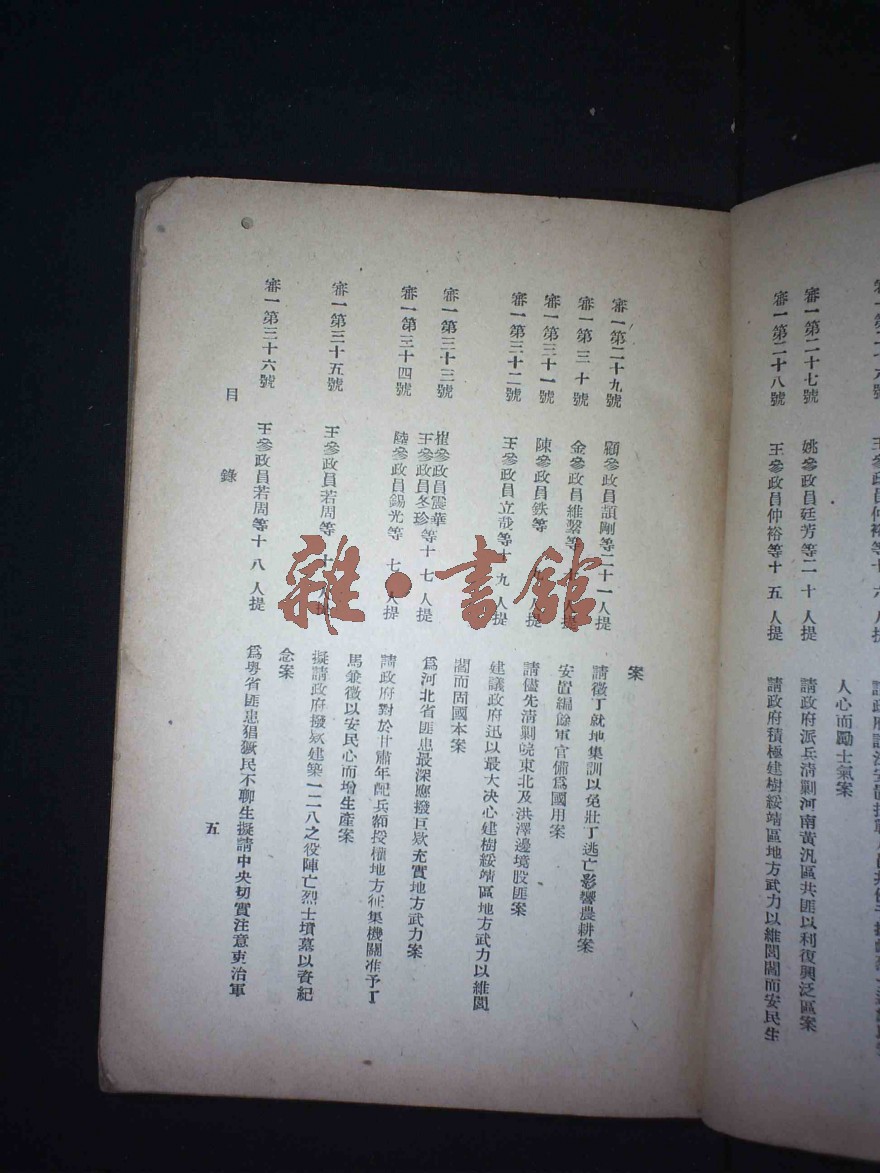 人心而勵士氣案
審一第二十七號 姚參政員廷芳等二十人提 請政府派兵清剿河南黃汎區共匪以利復興泛區案
審一第二十八號 王參政員仲裕等十五人提 請政府積極建樹綏靖區地方武力以維閭閻而安民生
案
審一第二十九號 顧參政員頡剛等二十一人提 請徵丁就地集訓以免壯丁逃亡影響農耕案
審一第三十號 金參政員維繫等 人提 安置編餘軍官備爲國用案
審一第三十一號 陳參政員鉄等 人提 請儘先清剿皖東北及洪澤邊境股匪案
審一第三十二號 王參政員立哉等十九人提 建議政府迅以最大决心建樹綏靖區地方武力以維閭
閻而固國本案
審一第三十三號 崔參政員震華
王參政員冬珍等十七人提 爲河北省匪患最深應撥巨欵充實地方武力案
審一第三十四號 陸參政員錫光等 七人提 請政府對於甘肅年配兵額授權地方征集機關准予丁
馬兼徵以安民心而增生產案
審一第三十五號 王參政員若周等十 人提 擬請政府撥欵建築一二八之役陣亡烈士墳墓以資紀
念案
審一第三十六號 王參政員若周等十八人提 爲粵省匪患猖獗民不聊生擬請中央切實注意吏治軍
目錄
五
雜·書館